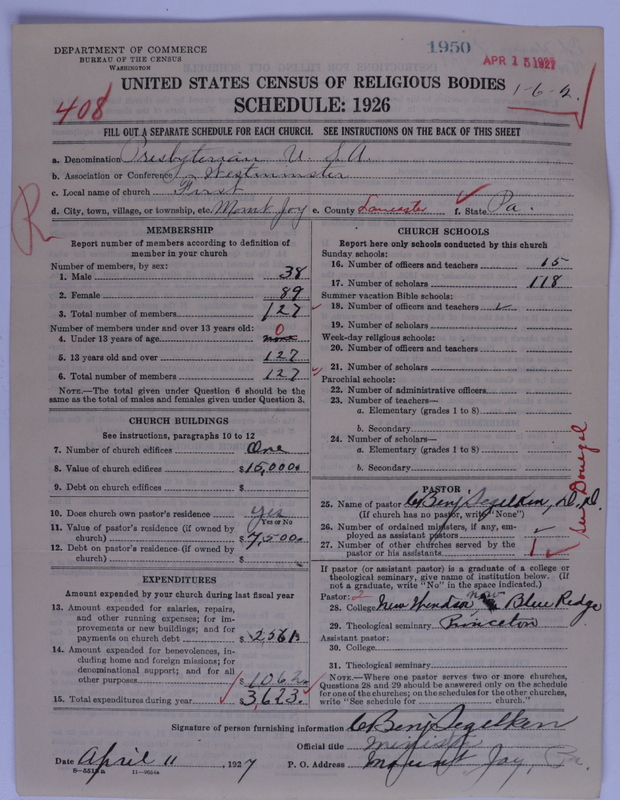 DEPARTMENT OF COMMERCE
BUREAU OF THE CENSUS
WASHINGTON
1950
APR 15 1927
UNITED STATES CENSUS OF RELIGIOUS BODIES
SCHEDULE: 1926
408
1-6-2.
FILL OUT A SEPARATE SCHEDULE FOR EACH CHURCH. SEE INSTRUCTIONS ON THE BACK OF THIS SHEET
a. Denomination Presbyterian U S A.
b. Association or Conference Westminster
c. Local name of church First
d. City, town, village, or township, etc. Mount Joy e. County Lancaster f. State Pa.
R
MEMBERSHIP
Report number of members according to definition of
member in your church
Number of members, by sex:
1. Male 38
2. Female 89
3. Total number of members 127
Number of members under and over 13 years old:
4. Under 13 years of age none 0
5. 13 years old and over 127
6. Total number of members 127
NOTE.—The total given under Question 6 should be the
same as the total of males and females given under Question 3.
CHURCH BUILDINGS
See instructions, paragraphs 10 to 12
7. Number of church edifices One
8. Value of church edifices $15,000
9. Debt on church edifices $
10. Does church own pastor's residence Yes
Yes or No
11. Value of pastor's residence (if owned by
church) $7,500
12. Debt on pastor's residence (if owned by
church) $
EXPENDITURES
Amount expended by your church during last fiscal year
13. Amount expended for salaries, repairs,
and other running expenses; for im-
provements or new buildings; and for
payments on church debt $2561
14. Amount expended for benevolences, in-
cluding home and foreign missions; for
denominational support; and for all
other purposes $1062.
15. Total expenditures during year $3,623.
CHURCH SCHOOLS
Report here only schools conducted by this church
Sunday schools:
16. Number of officers and teachers 15
17. Number of scholars 118
Summer vacation Bible schools:
18. Number of officers and teachers
19. Number of scholars
Week-day religious schools:
20. Number of officers and teachers
21. Number of scholars
Parochial schools:
22. Number of administrative officers
23. Number of teachers—
a. Elementary (grades 1 to 8)
b. Secondary
24. Number of scholars—
a. Elementary (grades 1 to 8)
b. Secondary
See Donegal
PASTOR
25. Name of pastor C Benj Segelken, D.D.
(If church has no pastor, write "None")
26. Number of ordained ministers, if any, em-
ployed as assistant pastors
27. Number of other churches served by the
pastor or his assistants 1
If pastor (or assistant pastor) is a graduate of a college or
theological seminary, give name of institution below. (If
not a graduate, write "No" in the space indicated.)
Pastor: 2
28. College New Windsor now Blue Ridge
29. Theological seminary Princeton
Assistant pastor:
30. College
31. Theological seminary
NOTE.—Where one pastor serves two or more churches,
Questions 28 and 29 should be answered only on the schedule
for one of the churches; on the schedules for the other churches,
write "See schedule for church."
Signature of person furnishing information C Benj Segelken
Official title Minister
Date April 11, 1927 P. O. Address Mount Joy, Pa.
11-9664a